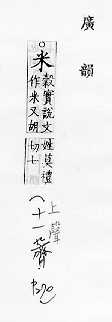 廣韻
○米
穀實說文
作米又胡
姓莫禮
切七
上聲
十一薺
P270